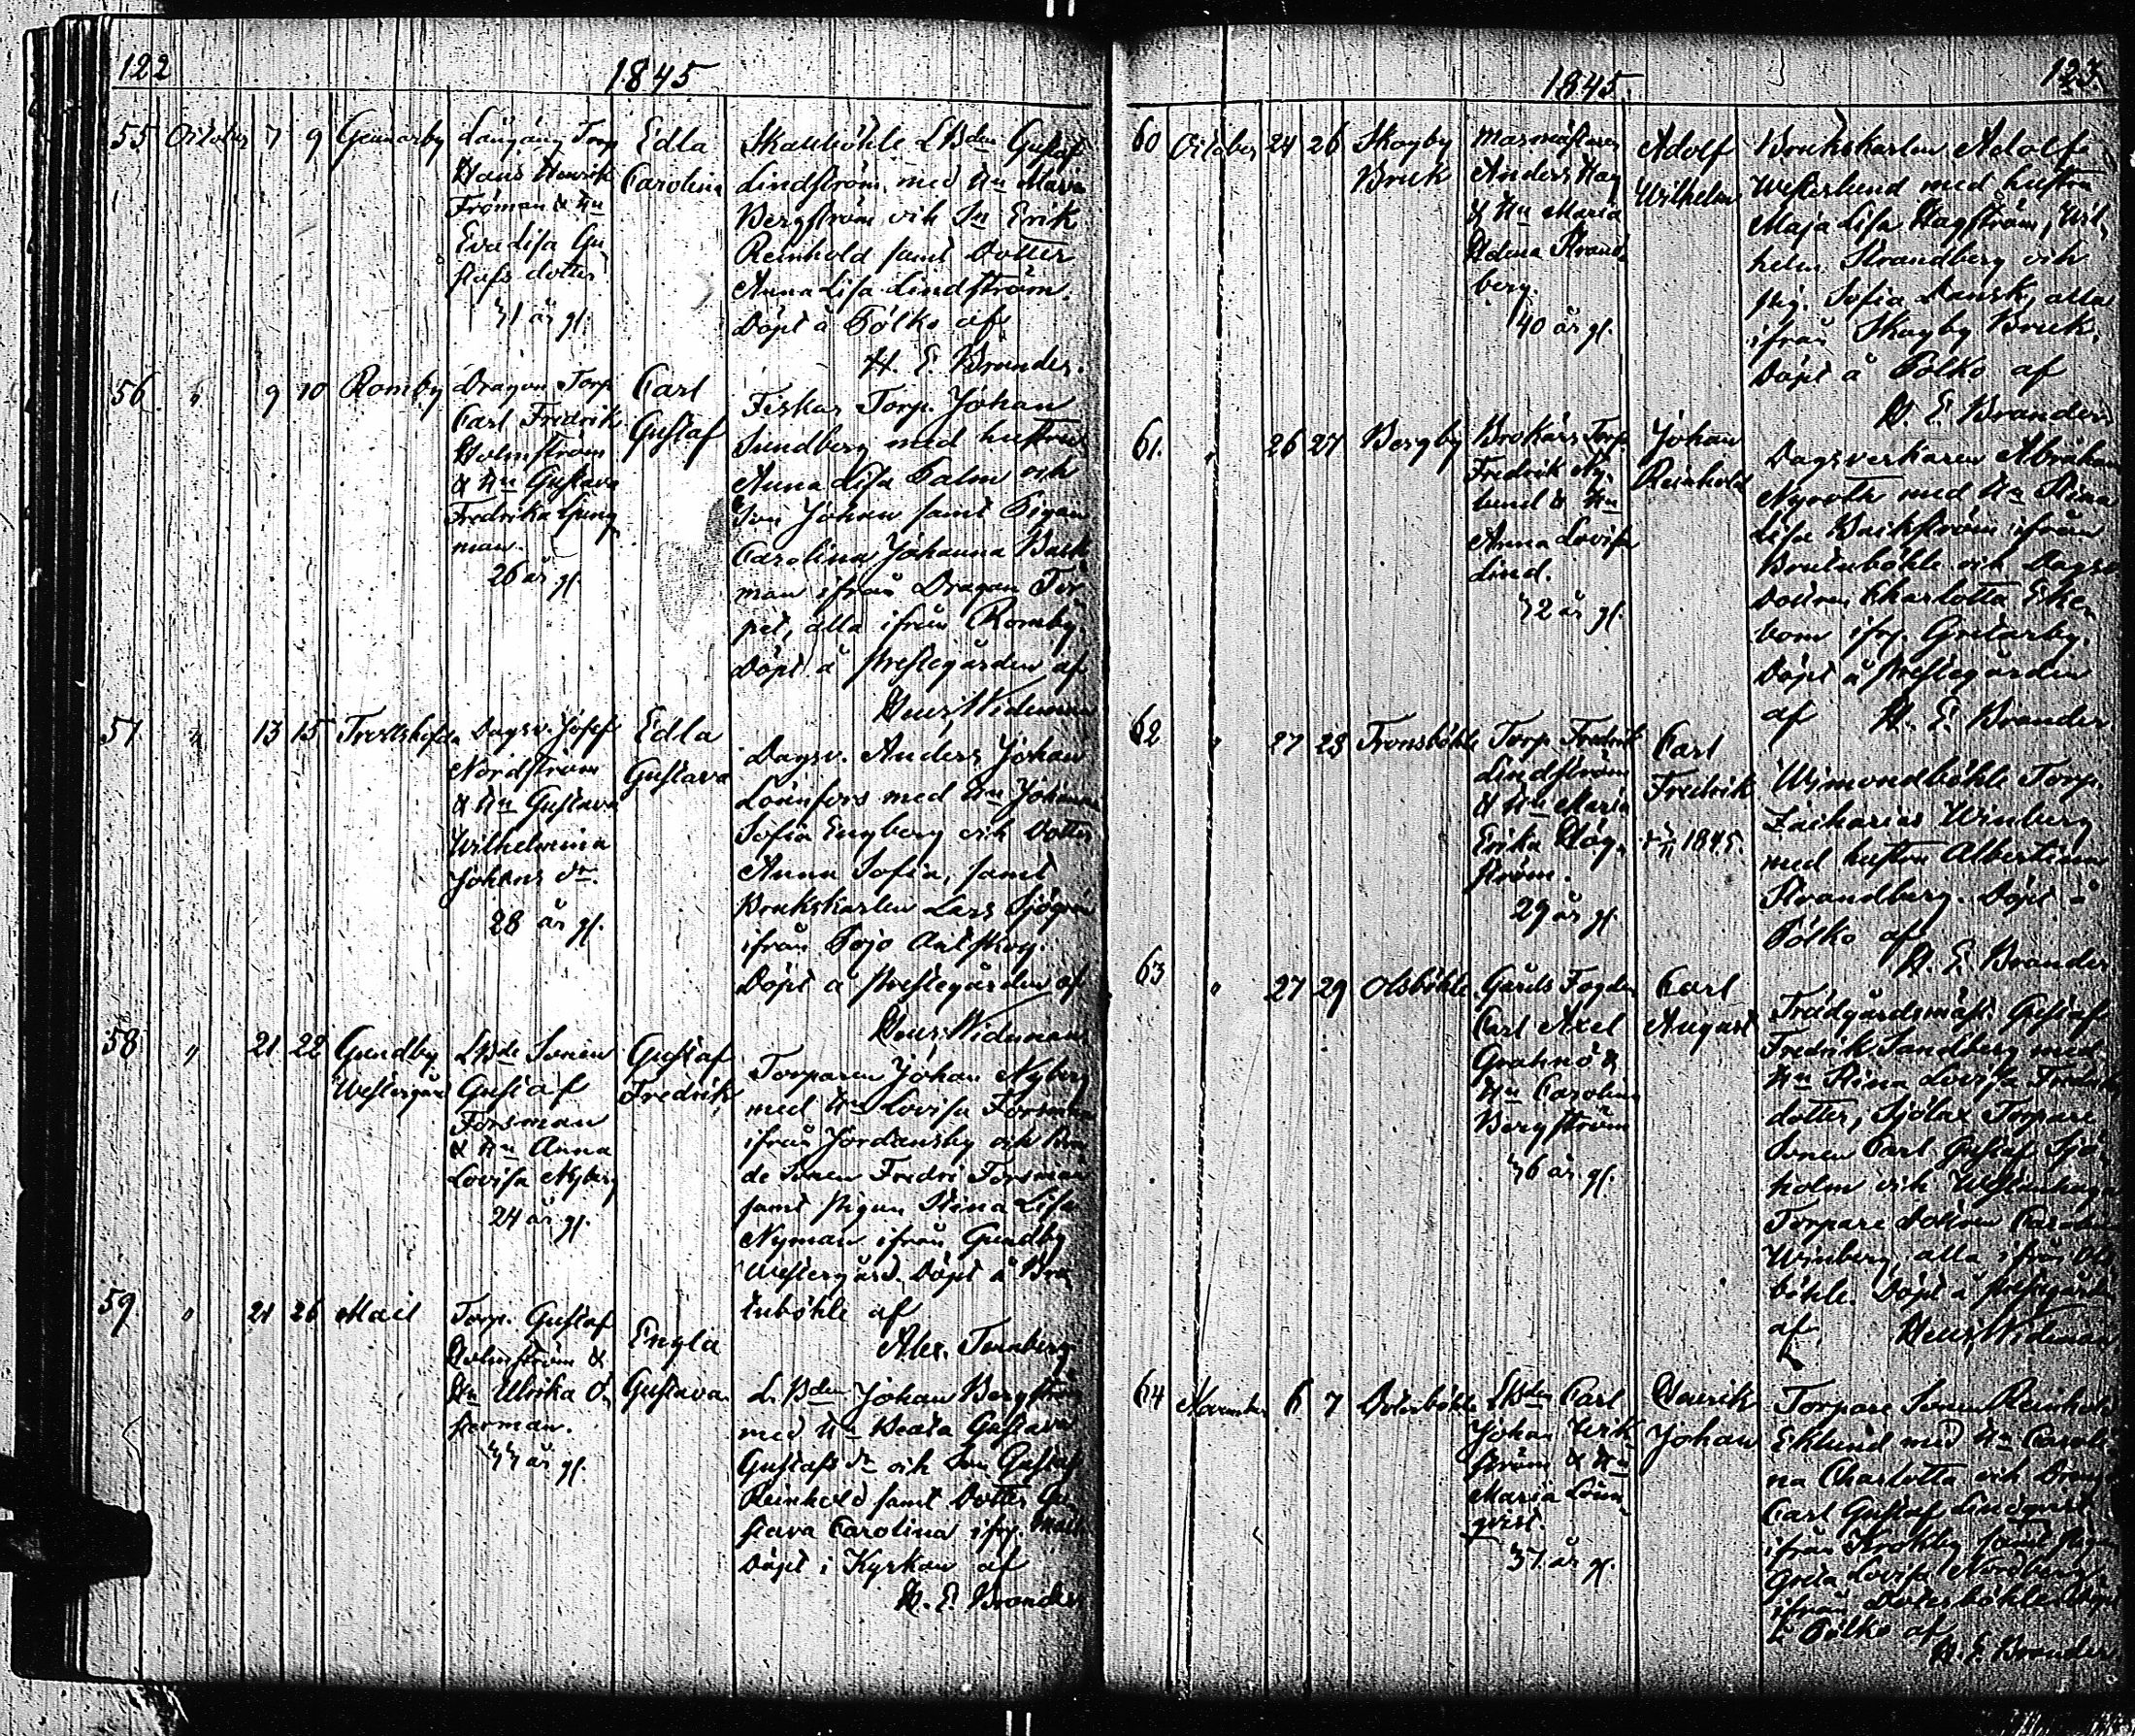 122
1845
55 October 7 9 Gennarby
Långäng Torp
Hans Henrik
Fröman & Hu
Eva Lisa Gu
stafs dotter
31 år gl.
Edla
Carolina
Skallböhle LBden Gustaf
Lindström med Hu Maria
Bergström och Sn Erik
Reinhold samt Dotter
Anna Lisa Lindström.
Döpt å Tölko af
H. E. Brander.
56 " 9 10 Romby
Dragon Torp
Carl Fredrik
Holmström
& Hu Gustava
Fredrika Ljung
man.
26 år gl.
Carl
Gustaf
Fiskar Torp. Johan
Sundberg med hustru
Anna Lisa Palm och
Son Johan samt Pigan
Carolina Johanna Back
man ifrån Dragon Tor
pet, alla ifrån Romby.
Döpt å Prestegården af
Henr. Wideman
57 " 13 15
Dagsv. Josef
Nordström
& Hu Gustava
Wilhelmina
Johans dr.
28 år gl.
Edla
Gustava
Dagsv. Anders Johan
Lönnfors med Hu Johanna
Sofia Engberg och Dotter
Anna Sofia, samt
Brukskarlen Lars Sjögren
ifrån Pojo Antskog.
Döpt å Prestegården af
Henr. Wideman
58 " 21 22 Gundby
Westergård
LBde Sonen
Gustaf
Forsman
& Hu Anna
Lovisa Nyberg
24 år gl.
Gustaf
Fredrik
Torparen Johan Nyberg
med Hu Lovisa Forsman
ifrån Jordansby och Bon
de Sonen Fredri Forsman
samt Pigan Stina Lisa
Nyman ifrån Gundby
Westergård. Döpt å Bru
tuböhle af
Alex. Tennberg
59 " 21 26 Mail
Torp. Gustaf
Holmström &
Hu Ulrika Ö
sterman.
33 år gl.
Engla
Gustava
L. Bden Johan Bergström
med Hu Beata Gustava
Gustafs dr och Son Gustaf
Reinhold samt Dotter Gu
stava Carolina ifrg. Mail.
Döpt i Kyrkan af
H. E. Brander
1845
123.
60 October 24 26 Skogby
Bruk
Masmästaren
Anders Hag
& Hu Maria
Helena Strand
berg.
40 år gl.
Adolf
Wilhelm
Brukskarlen Adolf
Westerlund med hustru
Maja Lisa Hagström, Wil
helm Strandberg och
pig. Sofia Dansk, alla
ifrån Skogby Bruk.
Döpt å Tölko af
H. E. Brander
61. " 26 27 Bergby
Brokärrs Torp.
Fredrik Ny
lund & Hu
Anna Lovisa
Lind.
32 år gl.
Johan
Reinhold
Dagsverkaren Abraham
Nyroth med Hu Stina
Lisa Backström ifrån
Brutuböhle och Dagsv
Dottren Charlotta Eke
bom ifrg. Gretarby.
Döpt å Prestegården
af H. E. Brander
62 " 27 28 Tronsböhle
Torp. Fredrik
Lindström
& Hu Maria
Erika Hög
ström.
29 år gl.
Carl
Fredrik
1845.
Wimondböhle Torp.
Zacharias Winberg
med hustru Albertina
Strandberg. Döpt å
Tölko af
H. E. Brander
63 " 27 29 Olsböhle
Gårds Fogden
Carl Axel
Grahnö &
Hu Carolina
Bergström
36 år gl.
Carl
August
Trädgårdsmäst. Gustaf
Fredrik Sandberg med
Hu Stina Lovisa Fredriks
dotter, Sjölax Torpare
Sonen Carl Gustaf Sjö
holm och
Torpare Dottren Carolina
Winberg, alla ifrån Ols
böhle. Döpt å Prestegården
af Henr. Wideman
64 November 6 7
LBden Carl
Johan Wik
ström & Hu
Maria Lönn
qvist.
37 år gl.
Henrik
Johan
Torpare Sonen Reinhold
Eklund med Hu Caroli
na Charlotta och Dreng
Carl Gustaf Lindqvist
ifrån Krokby samt pigan
Greta Lovisa Nordberg
ifrån Dotesböhle. Döpt
å Tölko af
H. E. Brander